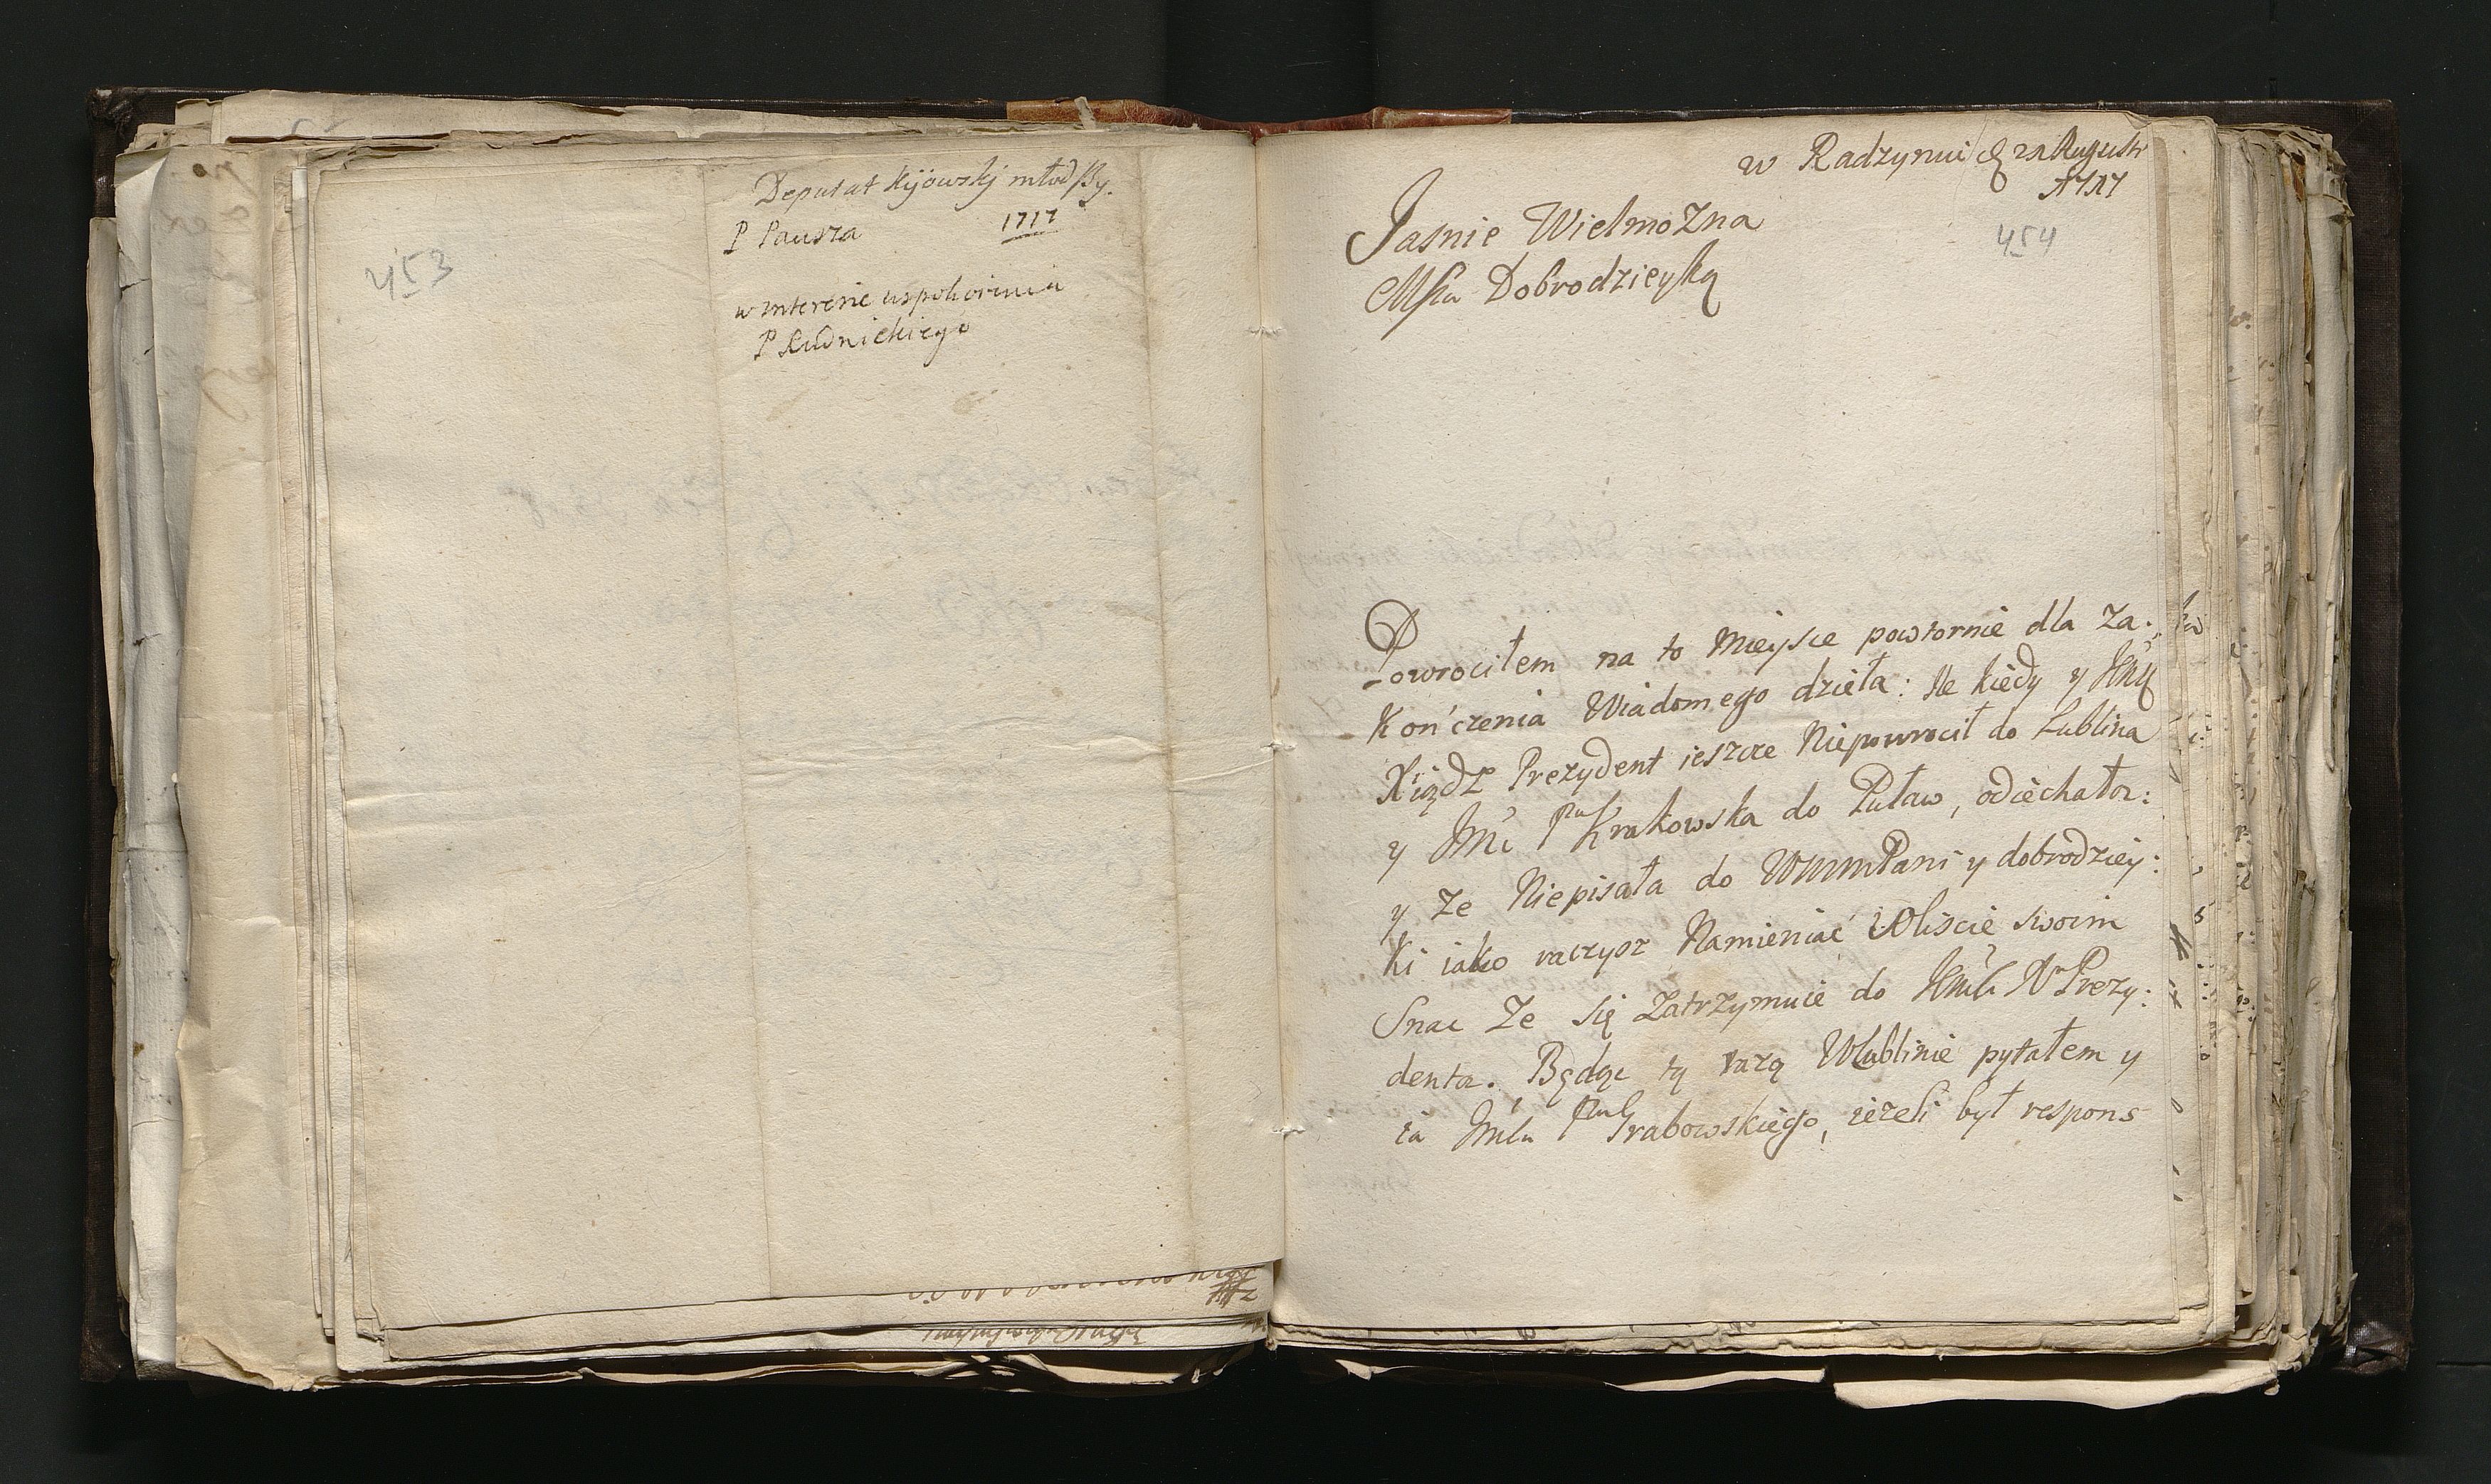 Deputat Kijowskj młodszy.
P Pausza 1717
453
w interesie uspokoienia
P Rudnickiego
w Radzyniu 
1717
454
Jasnie Wielmozna
Dobrodzieyką
Powrociłem na to Mieysce powtornie dla Za:
Kończenia Wiadomego dzieła: Ale kiedy y
Xiądz Prezydent ieszcze Niepowrocił do Lublina
y Krakowska do Puław, odiechała:
y Ze Niepisała do WMMPani y dobrodziey:
Ki iako raczysz Namieniać Wliscie swoim
Snac Ze się Zatrzymuie do Prezy:
denta. Będąc tą razą WLublinie pytałem y
ia Grabowskiego, iezeli był respons